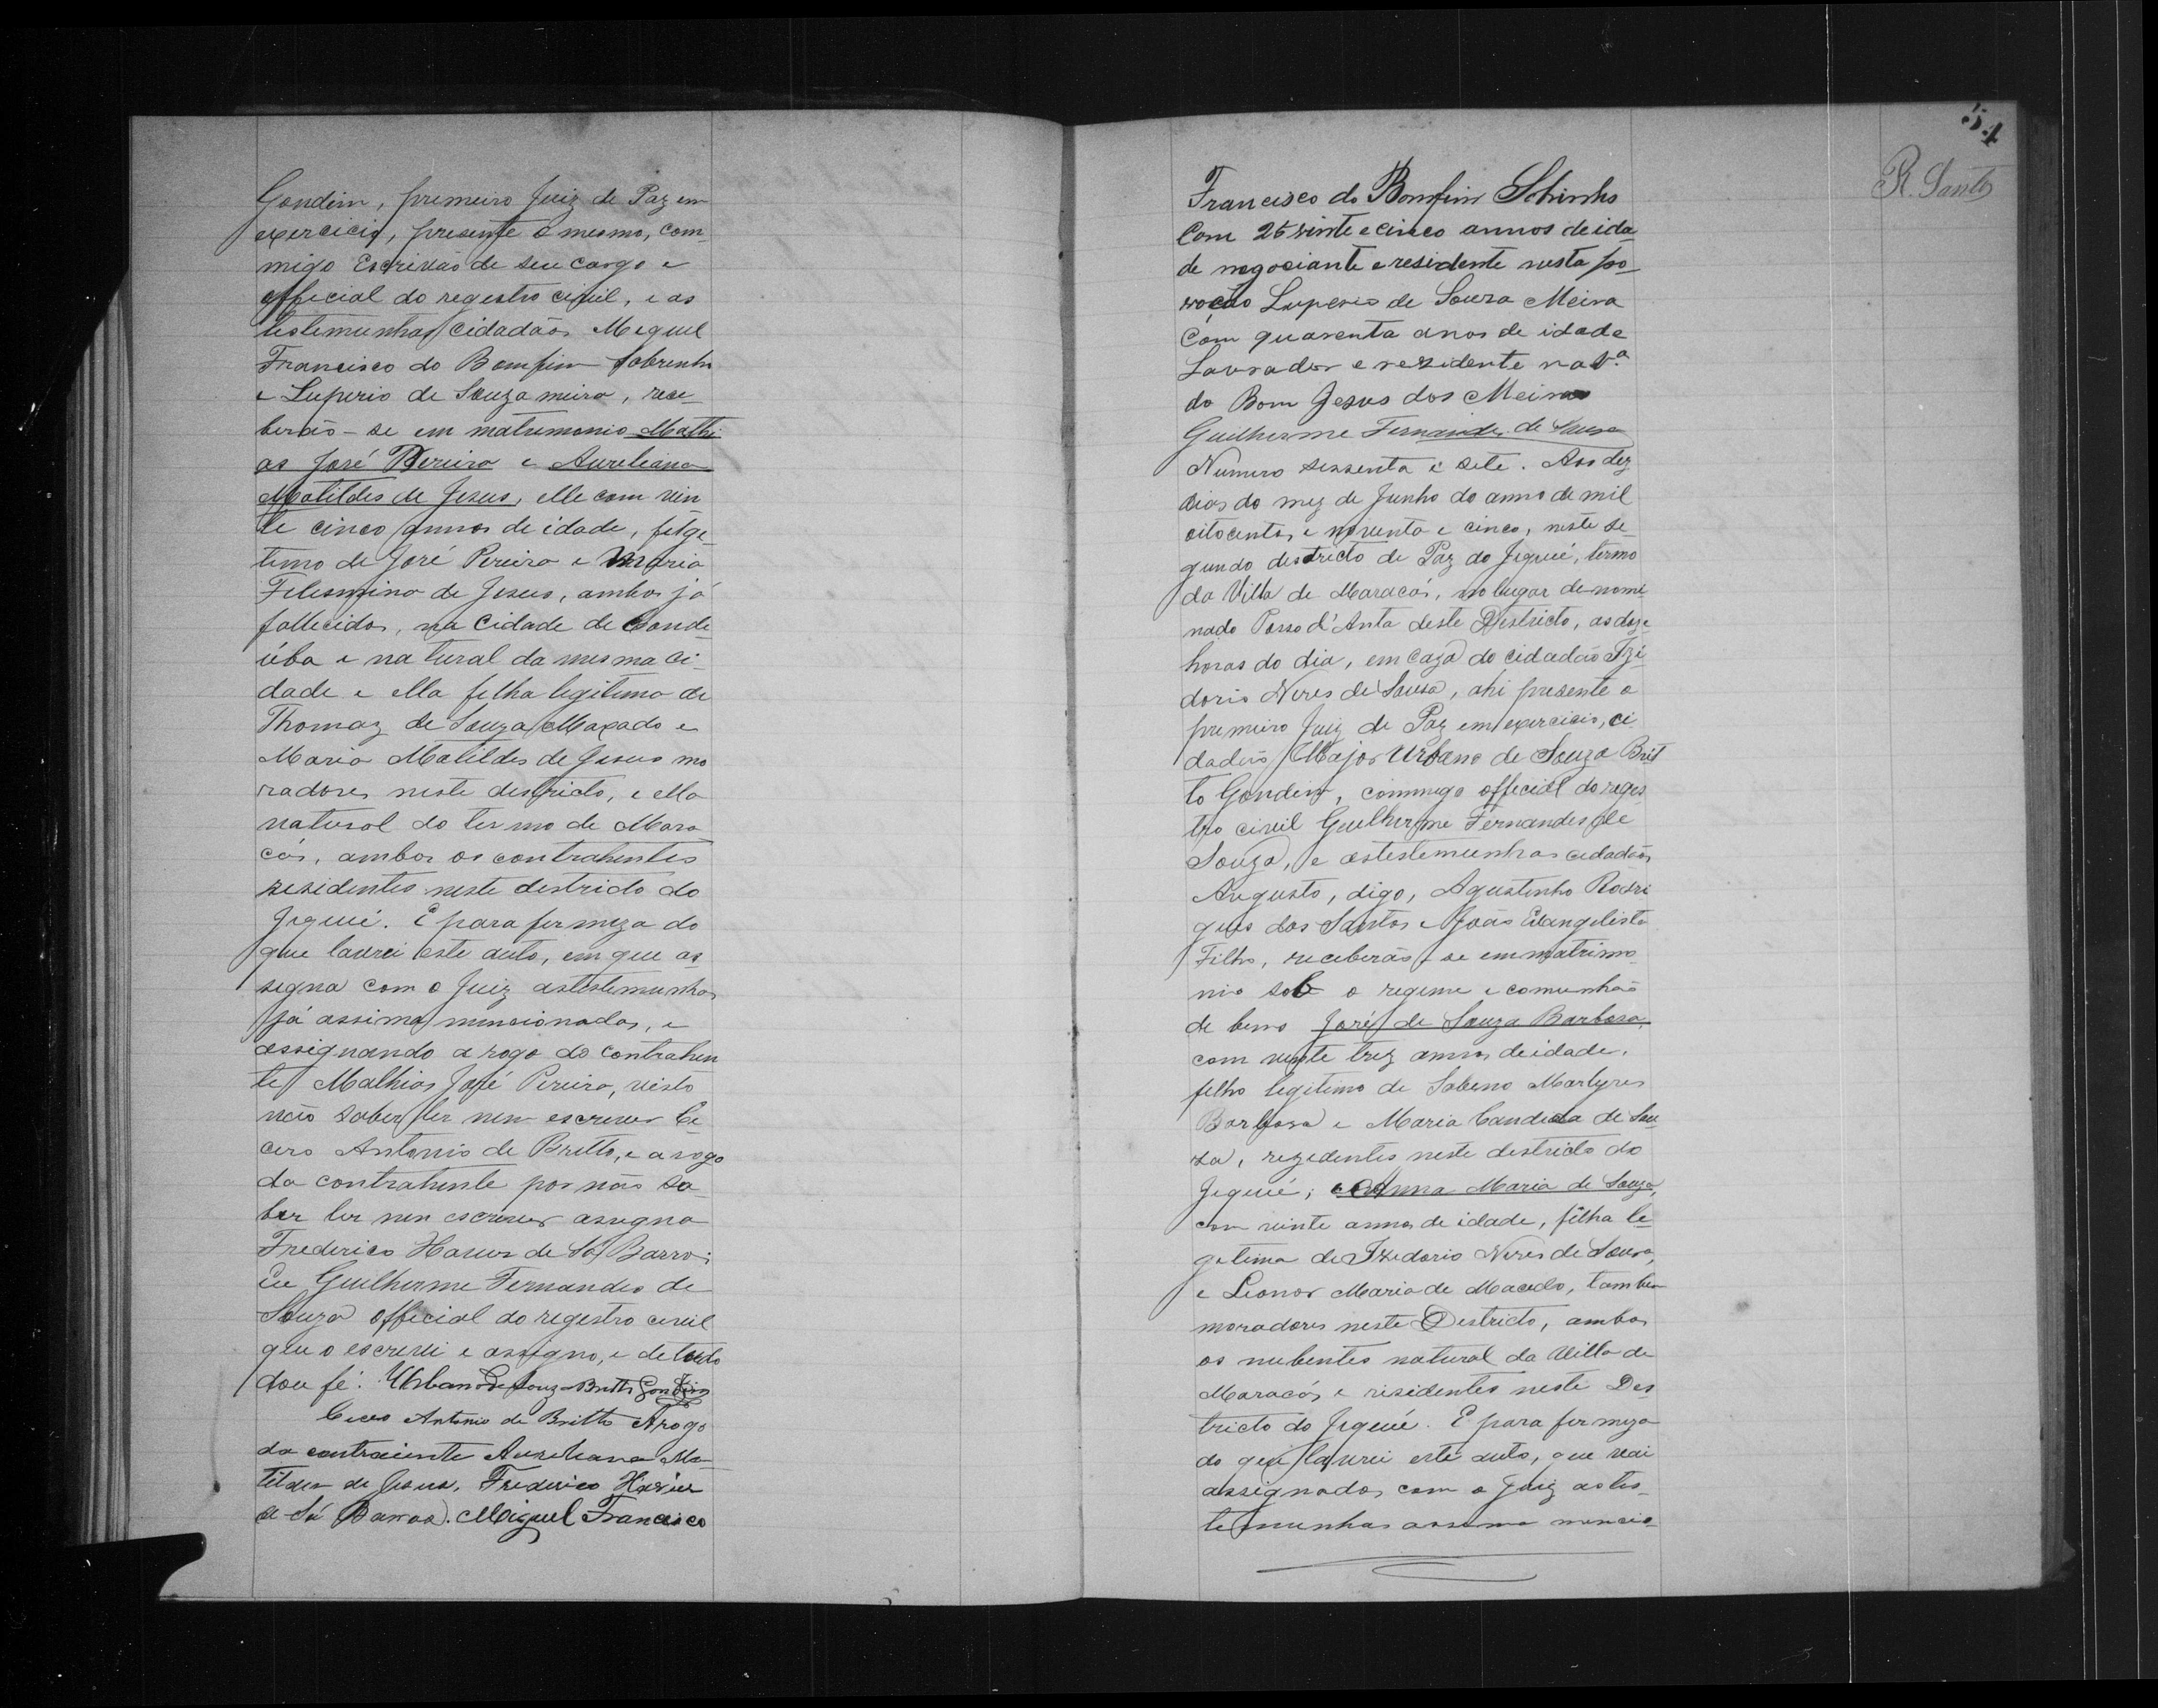 Gondim, primeiro Juiz de Paz em
exercicio, presente o mesmo, com-
migo Escrivão de seu cargo e
official do registro civil, e as
testemunhas cidadãos Miguel
Francisco do Bomfim Sobrinho
e Luperio de Souza meira, rece-
berão-se em matrimonio Mathi
as José Pereira e Aureliana
Matildes de Jesus, elle com vin
te cinco annos de idade, f. lege
timo de José Pereira e Maria
de Jesus, ambos já
fallecidos, na Cidade de Conde-
úba e natural da mesma ci-
dade e ella filha legitima de
Thomaz de Souza Maxado e
Maria Matildes de Jesus mo
radores neste destricto, e ella
natural do termo de Mara
cás, ambos os contrahentes
residentes neste destricto do
Jequié. E para firmeza do
que lavrei este auto, em que as-
signa com o Juiz as testemunhas
já assima mencionadas, e
assignando a rogo do contrahen
te Mathias José Pereira, visto
não saber ler nem escrever Ci
cero Antonio de Britto, e a rogo
da contrahente por não sa-
ber ler nem escrever assigna
Frederico de Sá Barros
Eu Guilherme Fernandes de
Souza official do registro civil
que o escrevi e assigno, e de tudo
dou fé. Urbano de Souza Britto Gondim
Cicero Antonio de Britto Arogo
da contraiente Aureliana Ma-
tildes de Jesus, Frederico
de Sá Barros. Miguel Francisco
54
R. Santos
Francisco do Bomfim Sobrinho
Com 25 vinte e cinco annos de ida
de negociante e residente nesta po
voação Luperio de Souza Meira
Com quarenta anos de idade
Lavrador e rezidente na V.ª
do Bom Jesus dos Meiras
Guilherme Fernandes de Sousa
Numero sessenta e sete. Aos dez
dias do mez de Junho do anno de mil
oitocentos e noventa e cinco, neste se-
gundo destricto de Paz do Jequié, termo
da Villa de Maracás, no lugar denomi
nado Passo d'Anta deste Destricto, as doze
horas do dia, em caza do cidadão Izi-
dorio Neres de Sousa, ahi presente o
primeiro Juiz de Paz em exercicio, ci
dadão Major Urbano de Souza Brit
to Gondim, commigo official do regis
tro civil Guilherme Fernandes de
Souza, e as testemunhas cidadãos
Augusto, digo, Agustinho Rodri
gues dos Santos e João Evangelista
Filho, receberão-se em matrimo
nio sob o regime e comunhão
de bens José de Souza Barbosa,
com vinte trez annos de idade,
filho legitimo de Sabino Martyres
Barbosa e Maria Candida de Sou
za, rezidentes neste destricto do
Jequié; e Anna Maria de Souza,
com vinte annos de idade, filha le
getima de Izedorio Neres de Sousa,
e Leonor Maria de Macedo, tambem
moradores neste Destricto, ambos
os nubentes natural da Villa de
Maracás e residentes neste Des
tricto do Jequié. E para firmeza
do que lavrei este auto, que vai
assignados com o Juiz as tes-
temunhas assima mencio-